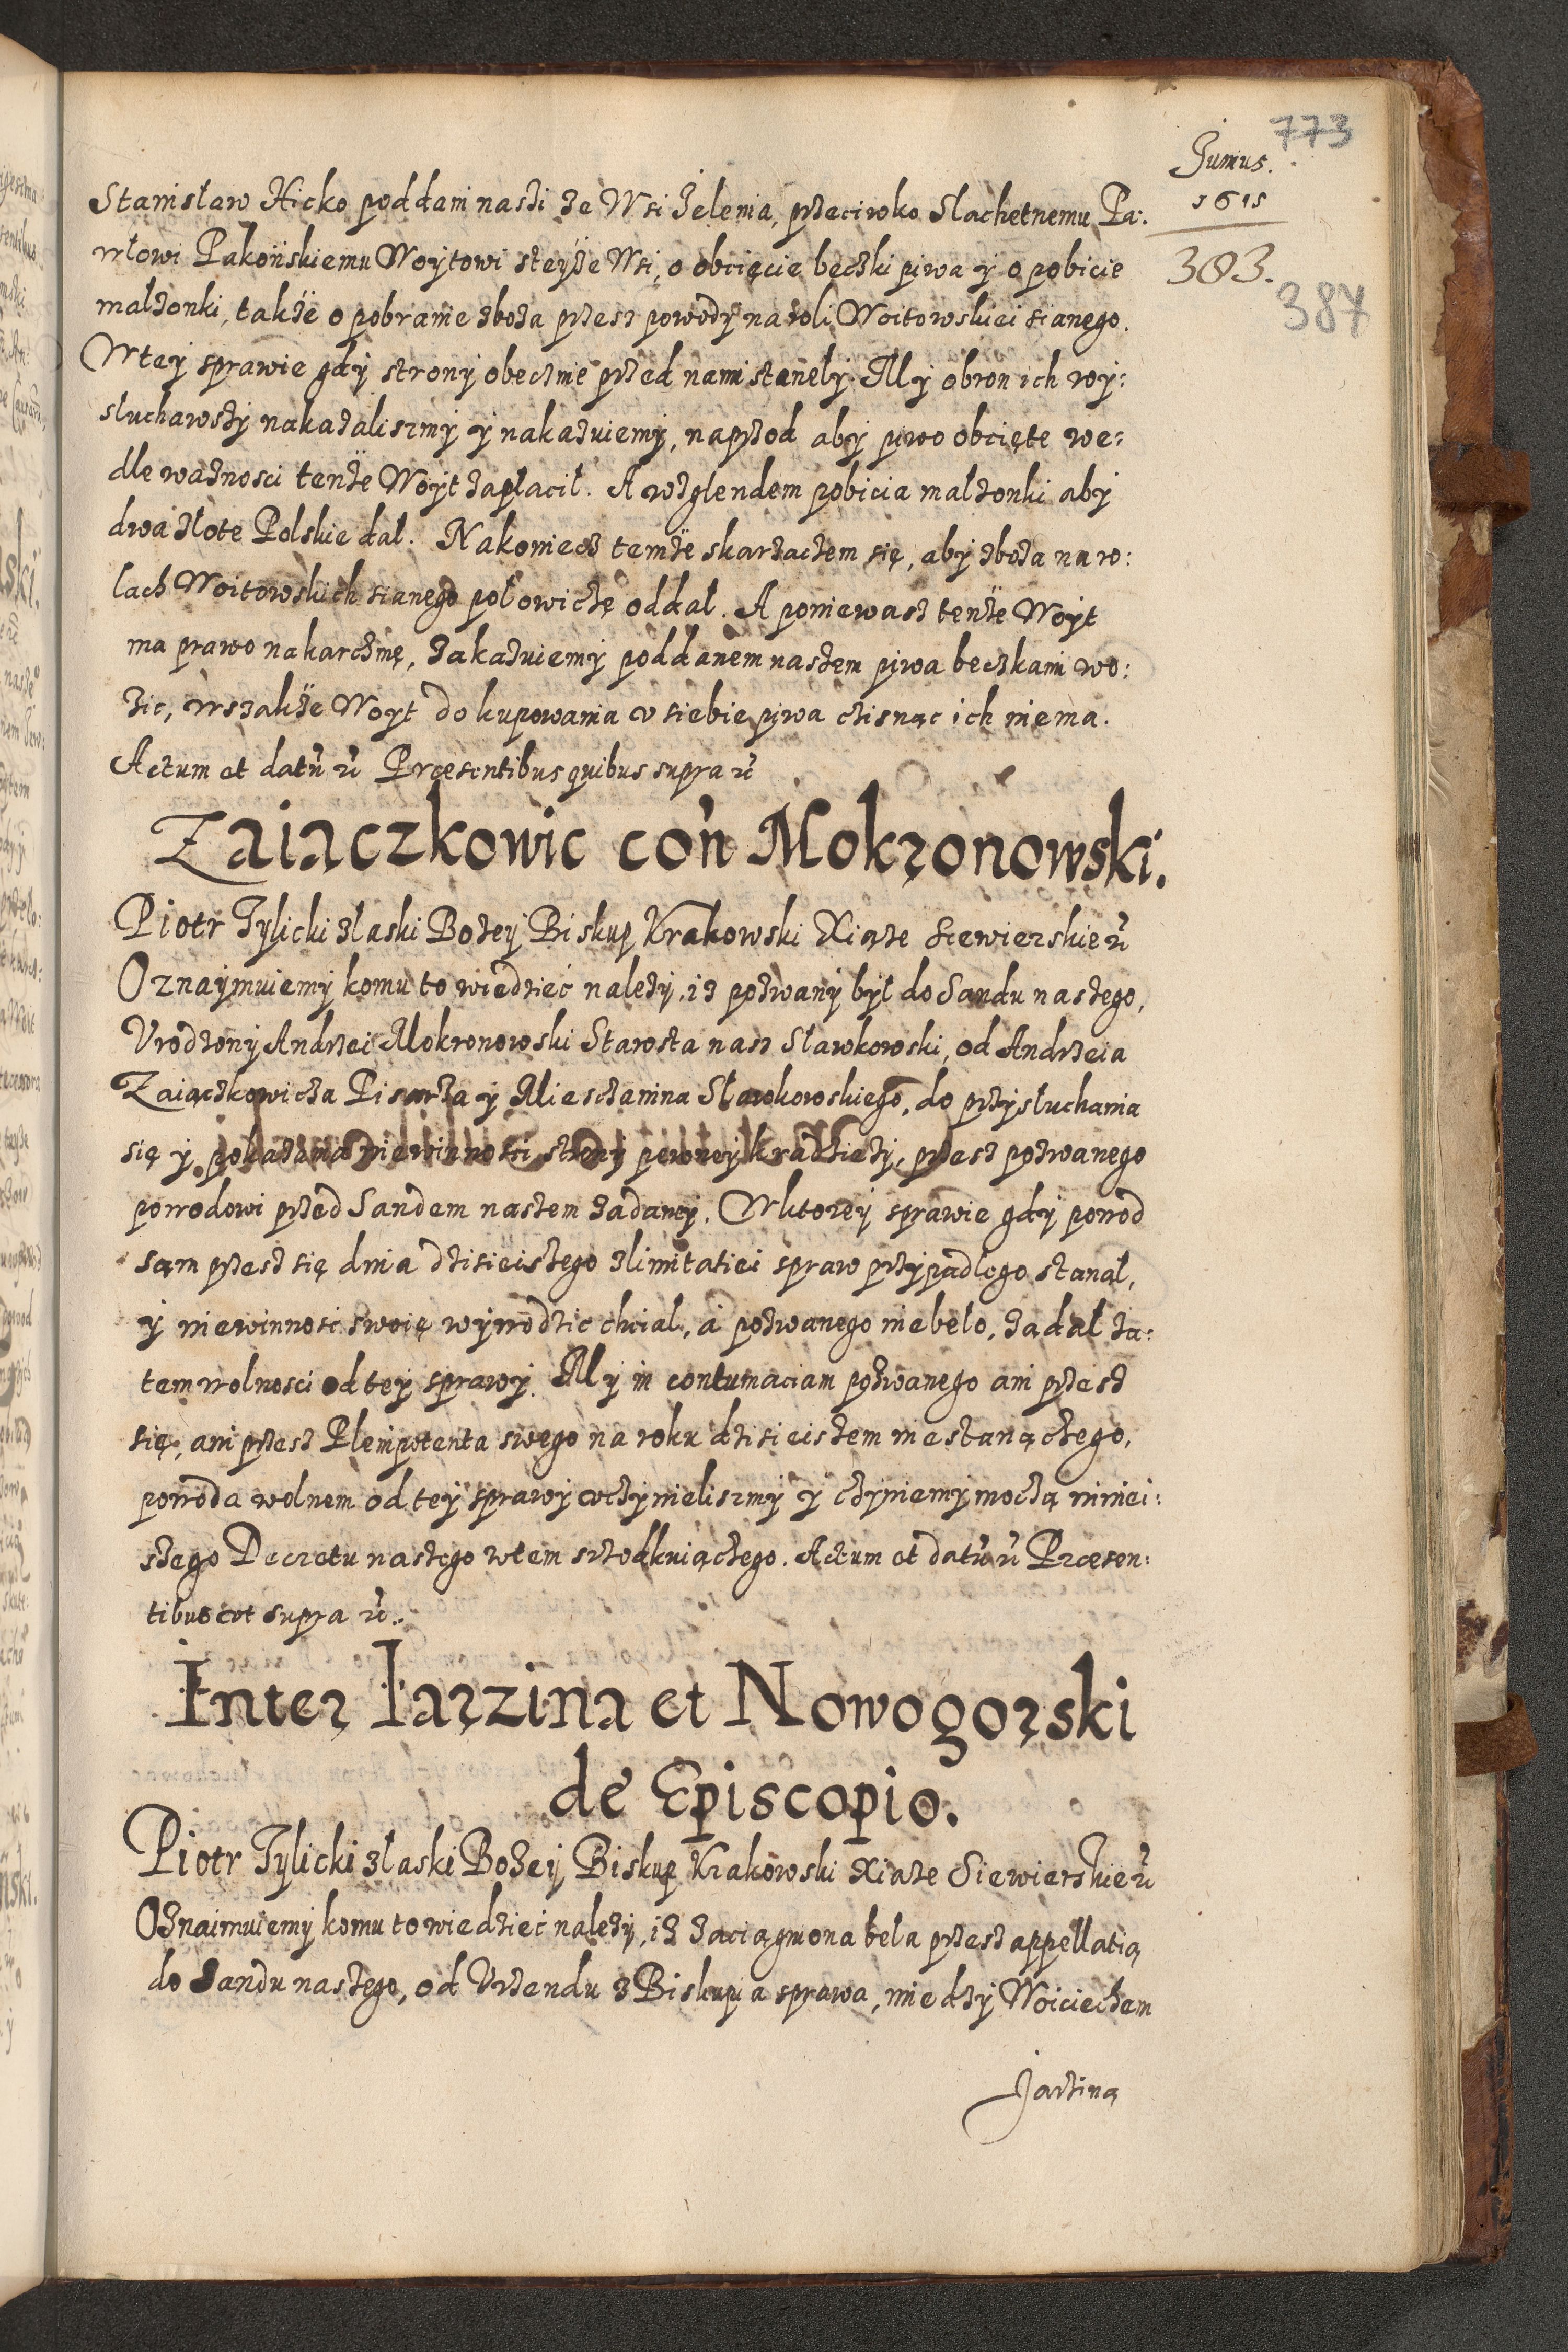 773
Junius.
1615
383.
387
Stanisław Hicko poddani naszi ze Wsi Zelenia, przeciwko Slachetnemu Pa:
włowi Pakońskiemu Woytowi steyże Wsi, o obcięcie beczki piwa y o pobicie
małzonki, także o pobranie zboza przesz powody na roli Woitowskiei sianego.
Wtey sprawie gdy strony obecznie przed nami stanęły. My obron ich wy:
słuchawszy nakazaliszmy y nakazuiemy, naprzod aby piwo obcięte we:
dle waznosci tenże Woyt zapłacił. A wzglendem pobicia małzonki aby
dwa złote Polskie dał. Nakoniecz temże skarzaczem się, aby zboza na ro:
lach Woitowskich sianego połowiczę oddał. A poniewasz tenże Woyt
ma prawo na karczmę, zakazuiemy poddanem naszem piwa beczkami wo:
zic, wszakże Woyt do kupowania v siebie piwa czisnąc ich niema.
Actum et datũ ꝛc̃ Præsentibus quibus supra ꝛc̃
Zaiączkowic coñ Mokronowski.
Piotr Tylicki zlaski Bozey Biskup Krakowski Xiąze Siewierskie ꝛc̃
Oznaymuiemy komu to wiedzieć nalezy, iz pozwany był do Sandu naszego,
Vrodzony Andrzei Mokronowski Starosta nasz Sławkowski, od Andrzeia
Zaiączkowicza Pisarza y Miesczanina Sławkowskiego, do przysłuchania
się y pokazania niewinnosci strony pewney kradziezy, przesz pozwanego
powodowi przed Sandem naszem zadaney. Wktorey sprawie gdy powod
sam przesz się dnia dzisieiszego zlimitatiei spraw przypadlego stanął,
y niewinnosc swoię wywodzic chciał, a pozwanego niebeło, ządał za:
tem wolnosci od tey sprawy. My in contumaciam pozwanego ani przesz
się, ani przesz Plenipotenta swego na roku dzisieiszem niestanączego,
powoda wolnem od tey sprawy vczynieliszmy y czyniemy moczą ninei:
szego Decretu naszego wtem srzodkuiączego. Actum et datũ ꝛc̃ Præsen:
tibus vt supra ꝛc̃.
Inter Iarzina et Nowogorski
de Episcopio.
Piotr Tylicki zlaski Bozey Biskup Krakowski Xiąze Siewierskie ꝛc̃
Oznaimuiemy komu to wiedzieć nalezy, iz zaciągniona beła przesz appellatią
do Sandu naszego, od Vrzendu z Biskupia sprawa, miedzy Woiciechem
Jarziną